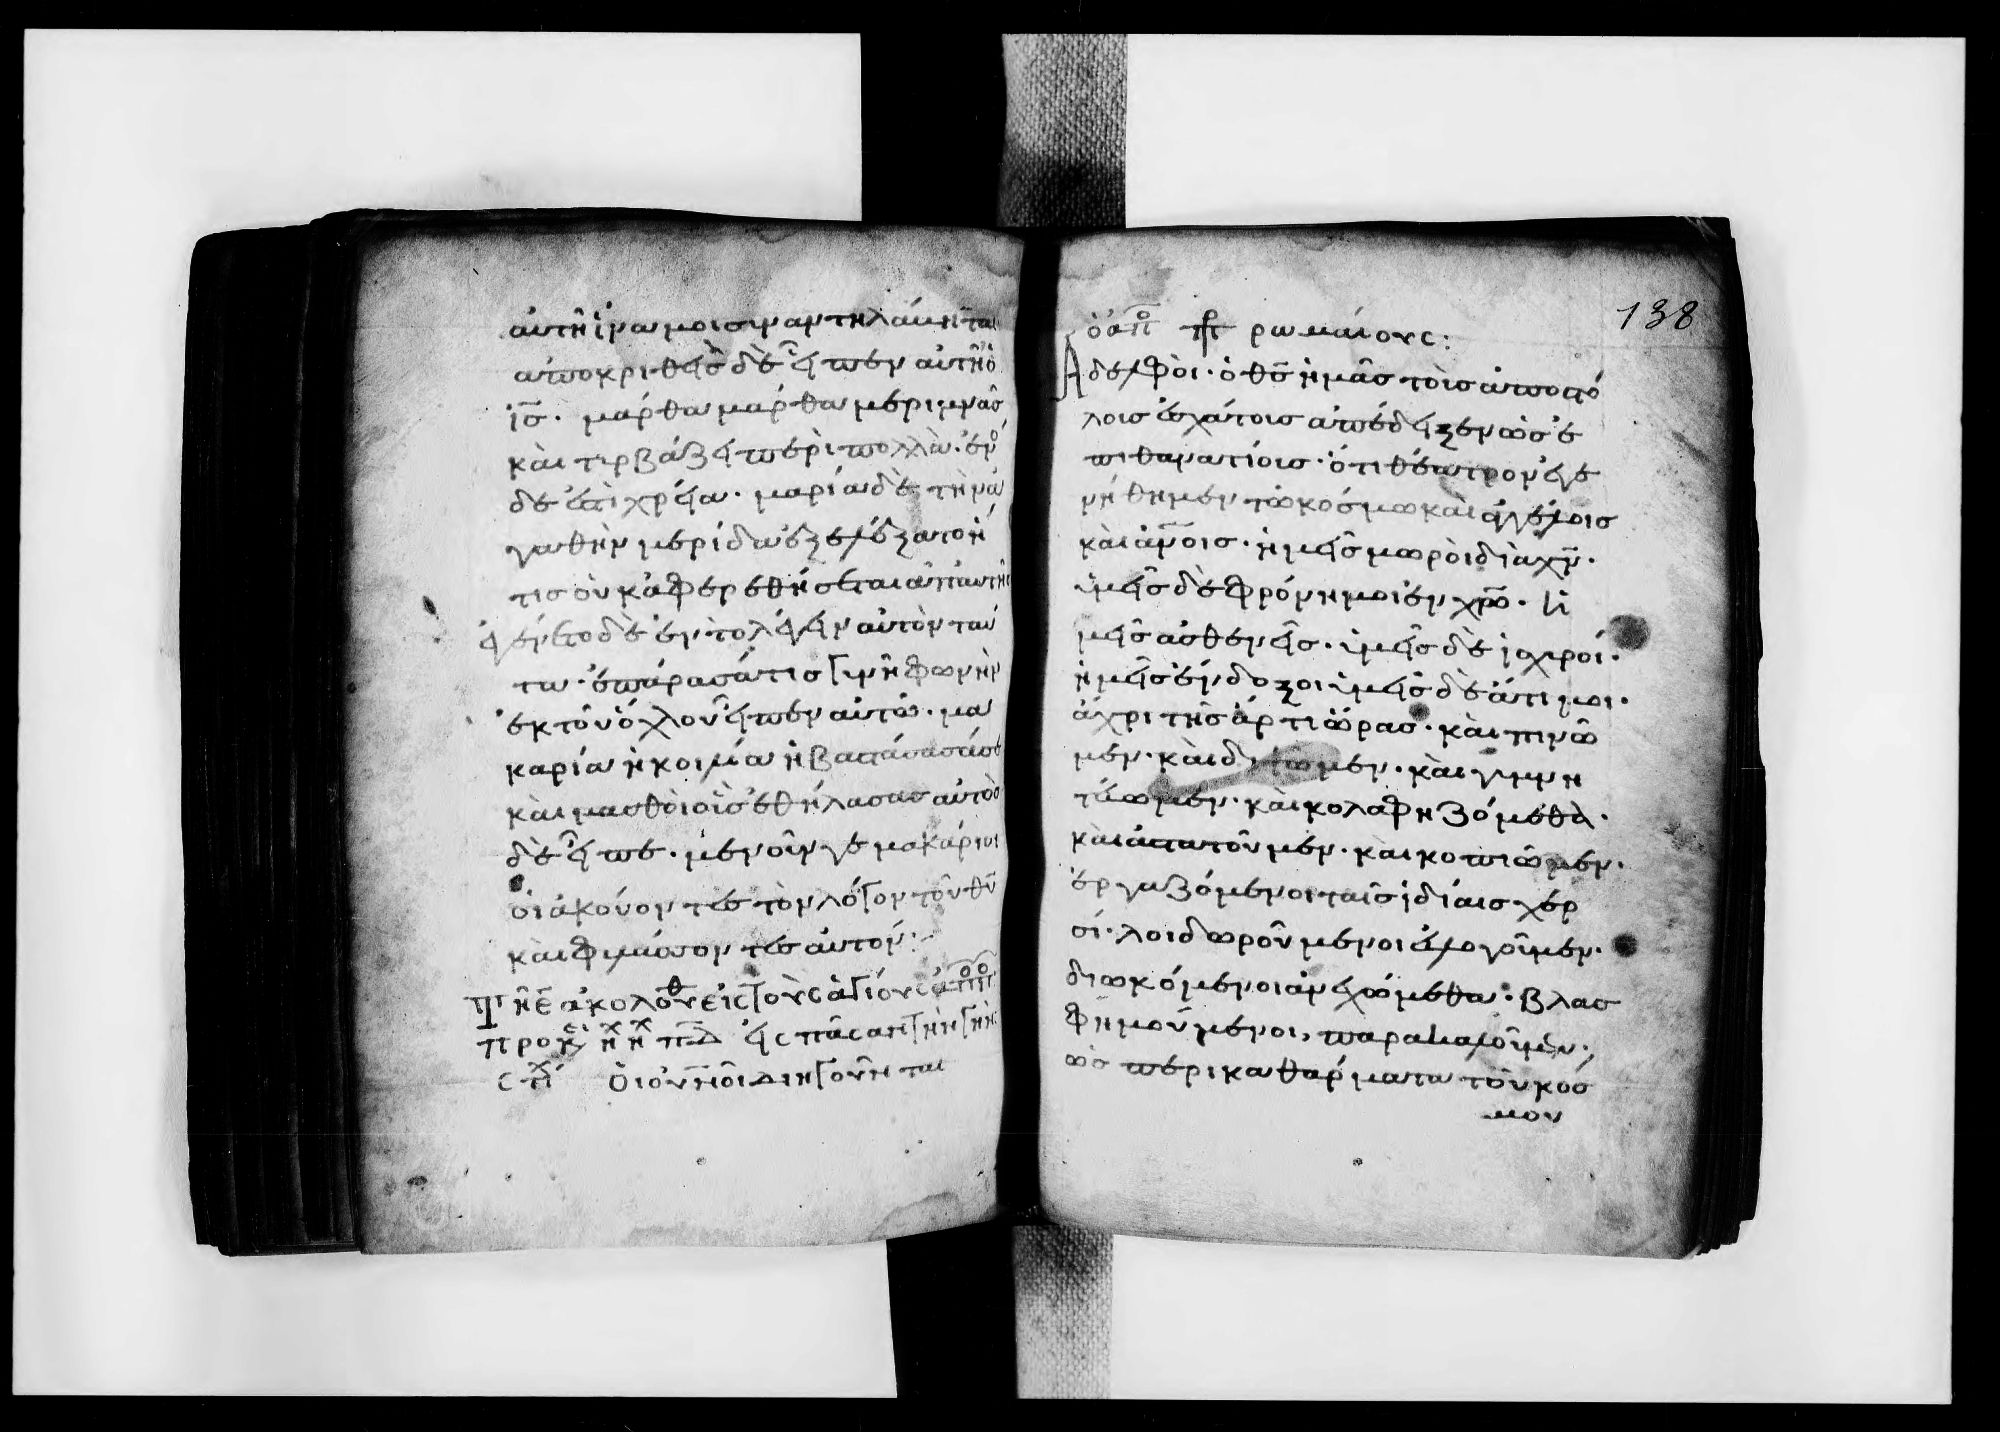 αυτῆ ἵνα μοι συναντηλάβηται
ἀποκριθεὶς δὲ εἶπεν αὐτῆ ὁ
ἰς̅. μάρθα μάρθα μεριμνᾶσ
καὶ τυρβάζει περὶ πολλὰ. ἑνὸ
δε ἐστὶ χρεία. μαρία δὲ τὴν ἀ
γαθὴν μερίδα ἐξελέξατο ἥ
τισ οὐκ ἀφερεθήσεται ἀπ' αυτῆς
ἐγένετο δὲ ἐν τὸ λέγειν αὐτὸν ταῦ
τα. ἐπάρασά τισ γυνῆ φωνὴν
ἐκ τοῦ ὄχλου εἶπεν αὐτῶ. μα
καρία ἡ κοιλία ἡ βαστάσασά σε
καὶ μασθοὶ οἱς ἐθήλασασ αὐτὸσ
δὲ εἶπε. μένουν γε μακάριοι
οἱ ἀκούοντεσ τὸν λόγον τοῦ θῦ
καὶ φυλάσσοντεσ αὐτόν.
Τῆ Ε ἀκολουθ εἰς τοὺς ἁγίους ἀπο
προκ ηχ ηχ πδ εἰς πᾶσαν τὴν γῆν
στιχ Ὁι οὐνοὶ διηγοῦνται
138
ὁ ἀπο πρ ρωμαίους:
Ἀδελφοὶ. ὁ θς̅ ἡμᾶσ τοὶσ ἀποστό
λοισ ἐσχάτοισ ἀπέδειξεν ὡσ ἐ
πιθανατίοισ. ὅτι θέατρον ἐγε
νήθημεν τῶ κόσμω καὶ ἀγγέλοισ
καὶ ἀν̅οισ. ἡμεῖσ μωροὶ διὰ χν̅.
ὑμεῖσ δὲ φρόνημοι ἐν χρῶ. ἡ
μεῖσ ασθενεῖσ. ὑμεῖσ δὲ ἰσχυροί.
ἡμεῖσ ἔνδοξοι ὑμεῖσ δὲ ἄτιμοι.
ἄχρι τῆσ ἄρτι ὥρασ. καὶ πινῶ
μεν. καὶ διψῶμεν. καὶ γυμνη
τέωμεν. καὶ κολαφηζόμεθα.
καὶ ἀστατοῦμεν. καὶ κοπιῶμεν.
ἐργαζόμενοι ταῖσ ἰδίαισ χερ
σί. λοιδωροῦμενοι εὐλογοῦμεν.
διωκόμενοι ἀνεχώμεθα. βλασ
φημούμενοι, παρακαλοῦμεν.
ὡσ περικαθάρματα τοῦ κόσ
μου